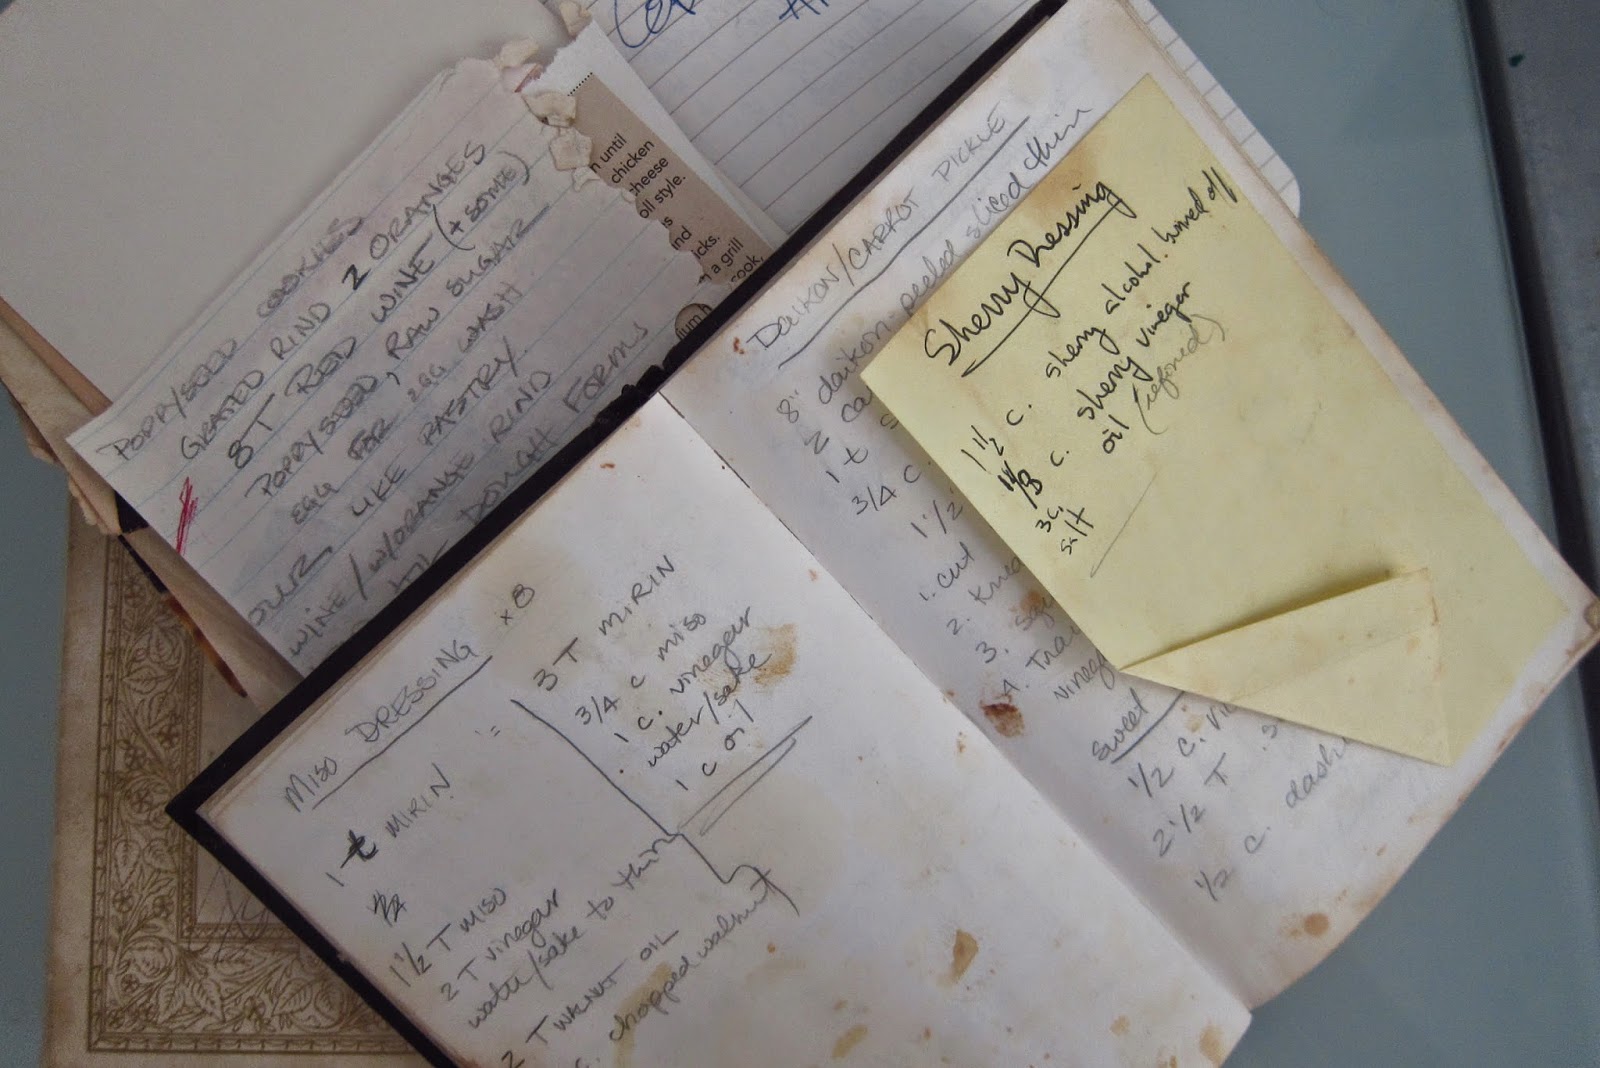 POPPYSEED COOKIES
GRATED RIND 2 ORANGES
8 T RED WINE (+ SOME)
POPPYSEED, RAW SUGAR
EGG FOR EGG WASH
LIKE PASTRY
WINE/W/ORANGE RIND
DOUGH FORMS
until
chicken
cheese
oll style.
nd
icks.
a grill
ook,
MISO DRESSING x 8
1 t MIRIN =
1 1/2 T MISO
2 T vinegar
water/sake to thin
2 T WALNUT OIL
c. chopped walnut
3 T MIRIN
3/4 c miso
1 c. vinegar
water/sake
1 c oil
DAIKON/CARROT PICKLE
8" daikon-peeled sliced thin
2 ca
1 t
3/4 c.
1 1/2
1. cut
2. Knea
3.
4.
vinega
Sweet
1/2 c.
2 1/2 T
1/2 c. dash
Sherry Dressing
1 1/2 c. sherry alcohol burned off
c. sherry vinegar
3 c. oil
salt